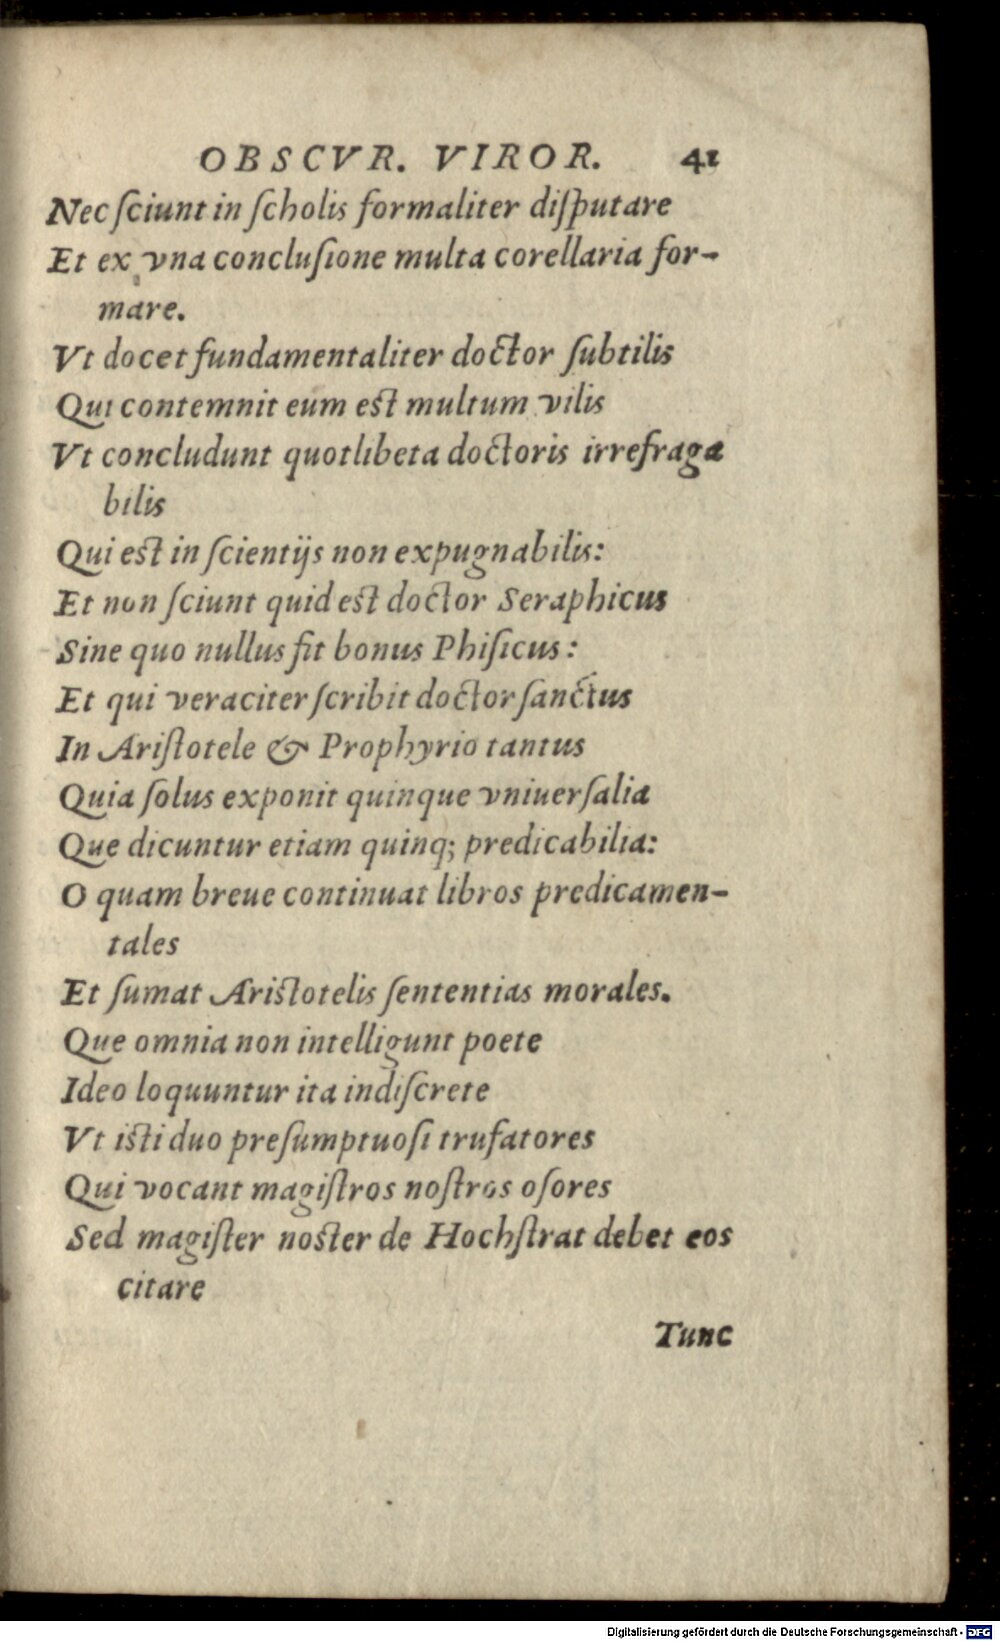 OBSCVR. VIROR. 41
Nec ſciunt in ſcholis formaliter diſputare
Et ex vna concluſione multa corellaria for-
mare.
Vt docet fundamentaliter doctor ſubtilis
Qui contemnit eum est multum vilis
Vt concludunt quotlibeta doctoris irrefraga
bilis
Qui est in ſcientijs non expugnabilis:
Et non ſciunt quid est doctor Seraphicus
Sine quo nullus fit bonus Phiſicus:
Et qui veraciter ſcribit doctor ſanctus
In Ariſtotele & Prophyrio tantus
Quia ſolus exponit quinque vniuerſalia
Que dicuntur etiam quinq; predicabilia:
O quam breue continuat libros predicamen-
tales
Et ſumat Aristotelis ſententias morales.
Que omnia non intelligunt poete
Ideo loquuntur ita indiſcrete
Vt isti duo preſumptuoſi trufatores
Qui vocant magiſtros noſtros oſores
Sed magiſter noster de Hochſtrat debet eos
citare
Tunc
Digitalisierung gefördert durch die Deutsche Forschungsgemeinschaft - DFG